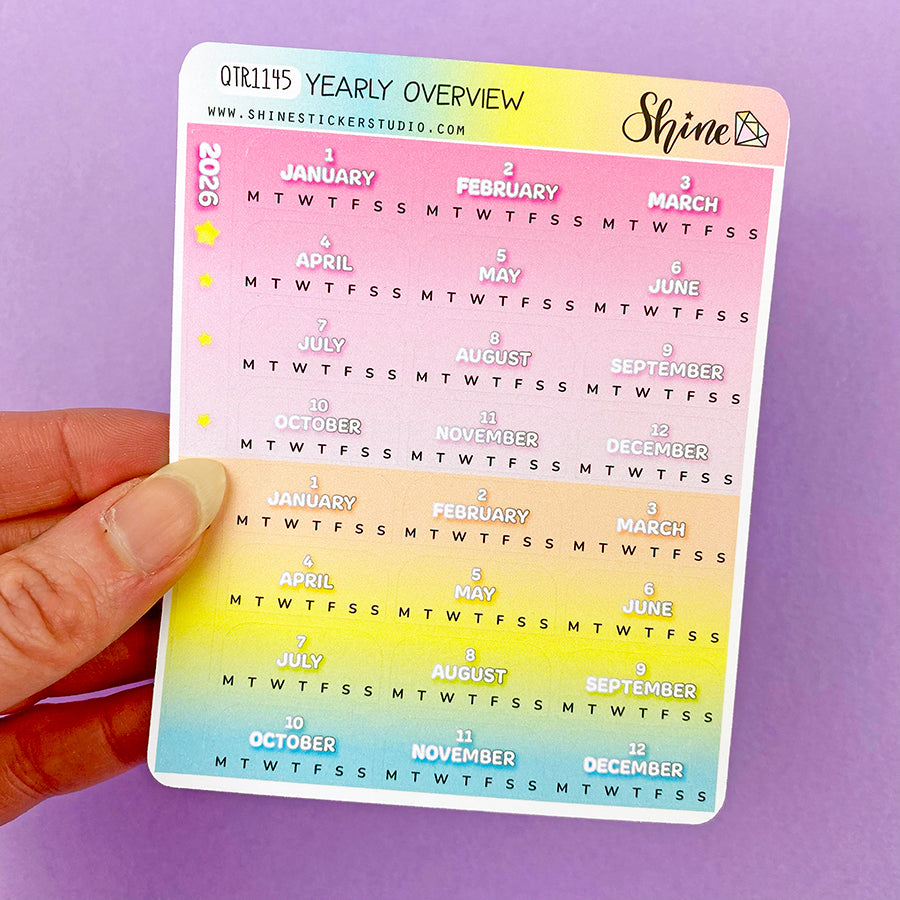 QTR1145 YEARLY OVERVIEW
WWW.SHINESTICKERSTUDIO.COM
Shine
2026
1 2 3
JANUARY FEBRUARY MARCH
M T W T F S S M T W T F S S M T W T F S S
4 5 6
APRIL MAY JUNE
M T W T F S S M T W T F S S M T W T F S S
7 8 9
JULY AUGUST SEPTEMBER
M T W T F S S M T W T F S S M T W T F S S
10 11 12
OCTOBER NOVEMBER DECEMBER
M T W T F S S M T W T F S S M T W T F S S
1 2 3
JANUARY FEBRUARY MARCH
M T W T F S S M T W T F S S M T W T F S S
4 5 6
APRIL MAY JUNE
M T W T F S S M T W T F S S M T W T F S S
7 8 9
JULY AUGUST SEPTEMBER
M T W T F S S M T W T F S S M T W T F S S
10 11 12
OCTOBER NOVEMBER DECEMBER
M T W T F S S M T W T F S S M T W T F S S